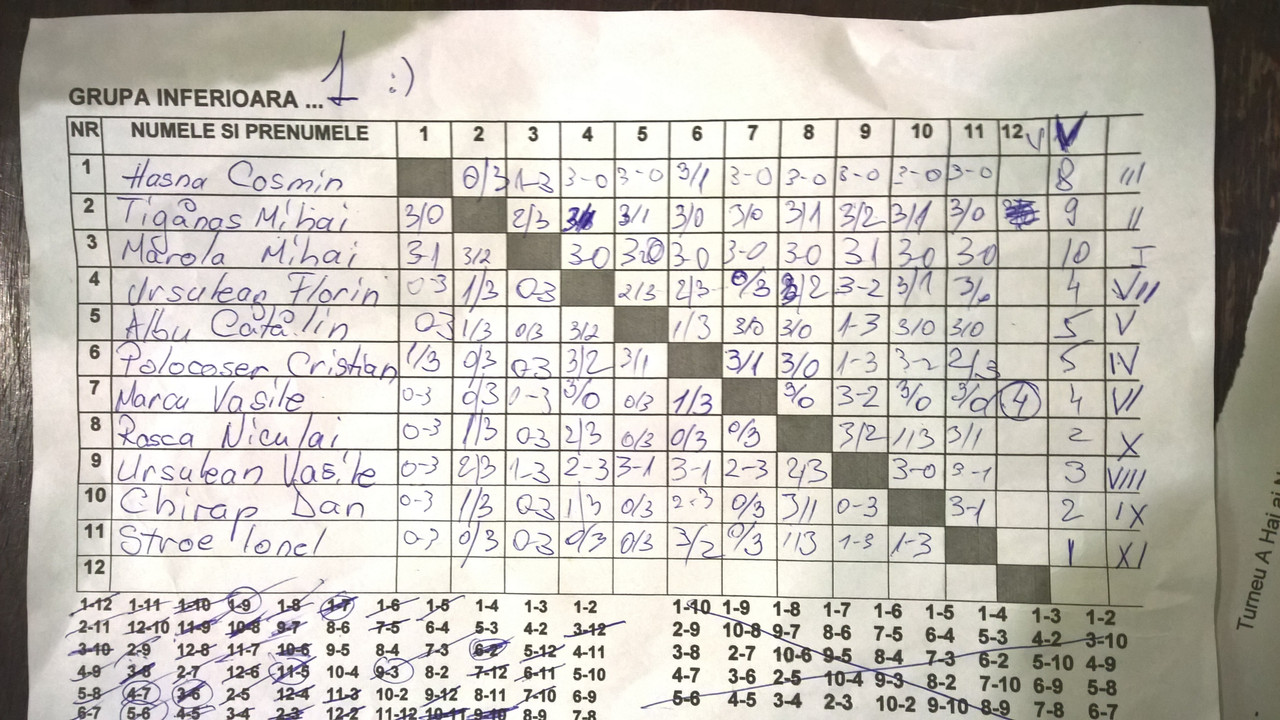 1 :)
GRUPA INFERIOARA ...
NR NUMELE SI PRENUMELE 1 2 3 4 5 6 7 8 9 10 11 12 V V
1 Hasna Cosmin 0/3 1-3 3-0 3-0 3/1 3-0 3-0 3-0 3-0 3-0 8 III
2 Țigănaș Mihai 3/0 2/3 3/1 3/0 3/0 3/1 3/2 3/1 3/0 9 II
3 Marola Mihai 3-1 3/2 3-0 3-0 3-0 3-0 3-0 3-1 3-0 3-0 10 I
4 Ursulean Florin 0-3 1/3 0-3 2/3 2/3 0/3 3/2 3-2 3/1 3/0 4 VII
5 Albu Cătălin 0-3 1/3 0/3 3/2 1/3 3/0 3/0 1-3 3/0 3/0 5 V
6 Polocoser Cristian 1/3 0/3 0-3 3/2 3/1 3/1 3/0 1-3 3-2 2/3 5 IV
7 Marcu Vasile 0-3 0/3 0-3 3/0 0/3 1/3 3/0 3-2 3/0 3/0 4 4 VI
8 Rosca Niculai 0-3 1/3 0-3 2/3 0/3 0/3 0/3 3/2 1/3 3/1 2 X
9 Ursulean Vasile 0-3 2/3 1-3 2-3 3-1 3-1 2-3 2/3 3-0 3-1 3 VIII
10 Chirap Dan 0-3 1/3 0-3 1/3 0/3 2-3 0/3 3/1 0-3 3-1 2 IX
11 Stroe Ionel 0-3 0/3 0-3 0/3 0/3 3/2 0/3 1/3 1-3 1-3 1 XI
12
1-12 1-11 1-10 1-9 1-8 1-7 1-6 1-5 1-4 1-3 1-2 1-10 1-9 1-8 1-7 1-6 1-5 1-4 1-3 1-2
2-11 12-10 11-9 10-8 9-7 8-6 7-5 6-4 5-3 4-2 3-12 2-9 10-8 9-7 8-6 7-5 6-4 5-3 4-2 3-10
3-10 2-9 12-8 11-7 10-6 9-5 8-4 7-3 6-2 5-12 4-11 3-8 2-7 10-6 9-5 8-4 7-3 6-2 5-10 4-9
4-9 3-8 2-7 12-6 11-5 10-4 9-3 8-2 7-12 6-11 5-10 4-7 3-6 2-5 10-4 9-3 8-2 7-10 6-9 5-8
5-8 4-7 3-6 2-5 12-4 11-3 10-2 9-12 8-11 7-10 6-9 5-6 4-5 3-4 2-3 10-2 9-10 8-9 7-8 6-7
6-7 5-6 4-5 3-4 2-3 12-2 11-12 10-11 9-10 8-9 7-8
Turneu A Hai ai